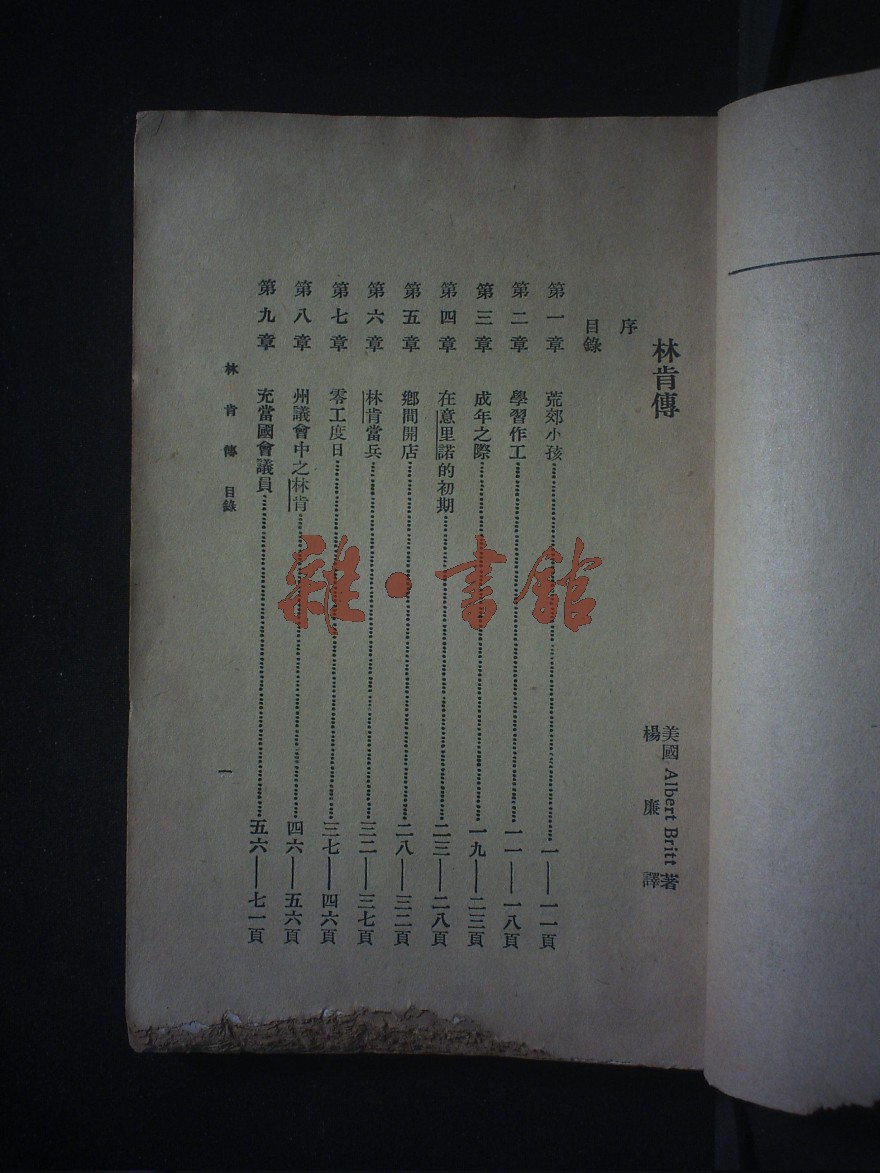 林肯傳
美國 Albert Britt 著
楊廉譯
序
目錄
第一章 荒郊小孩……一——一一頁
第二章 學習作工……一一——一八頁
第三章 成年之際……一九——二三頁
第四章 在意里諾的初期……二三——二八頁
第五章 鄉間開店……二八——三二頁
第六章 林肯當兵……三二——三七頁
第七章 零工度日……三七——四六頁
第八章 州議會中之林肯……四六——五六頁
第九章 充當國會議員……五六——七一頁
林肯傳 目錄
一
雜·書館